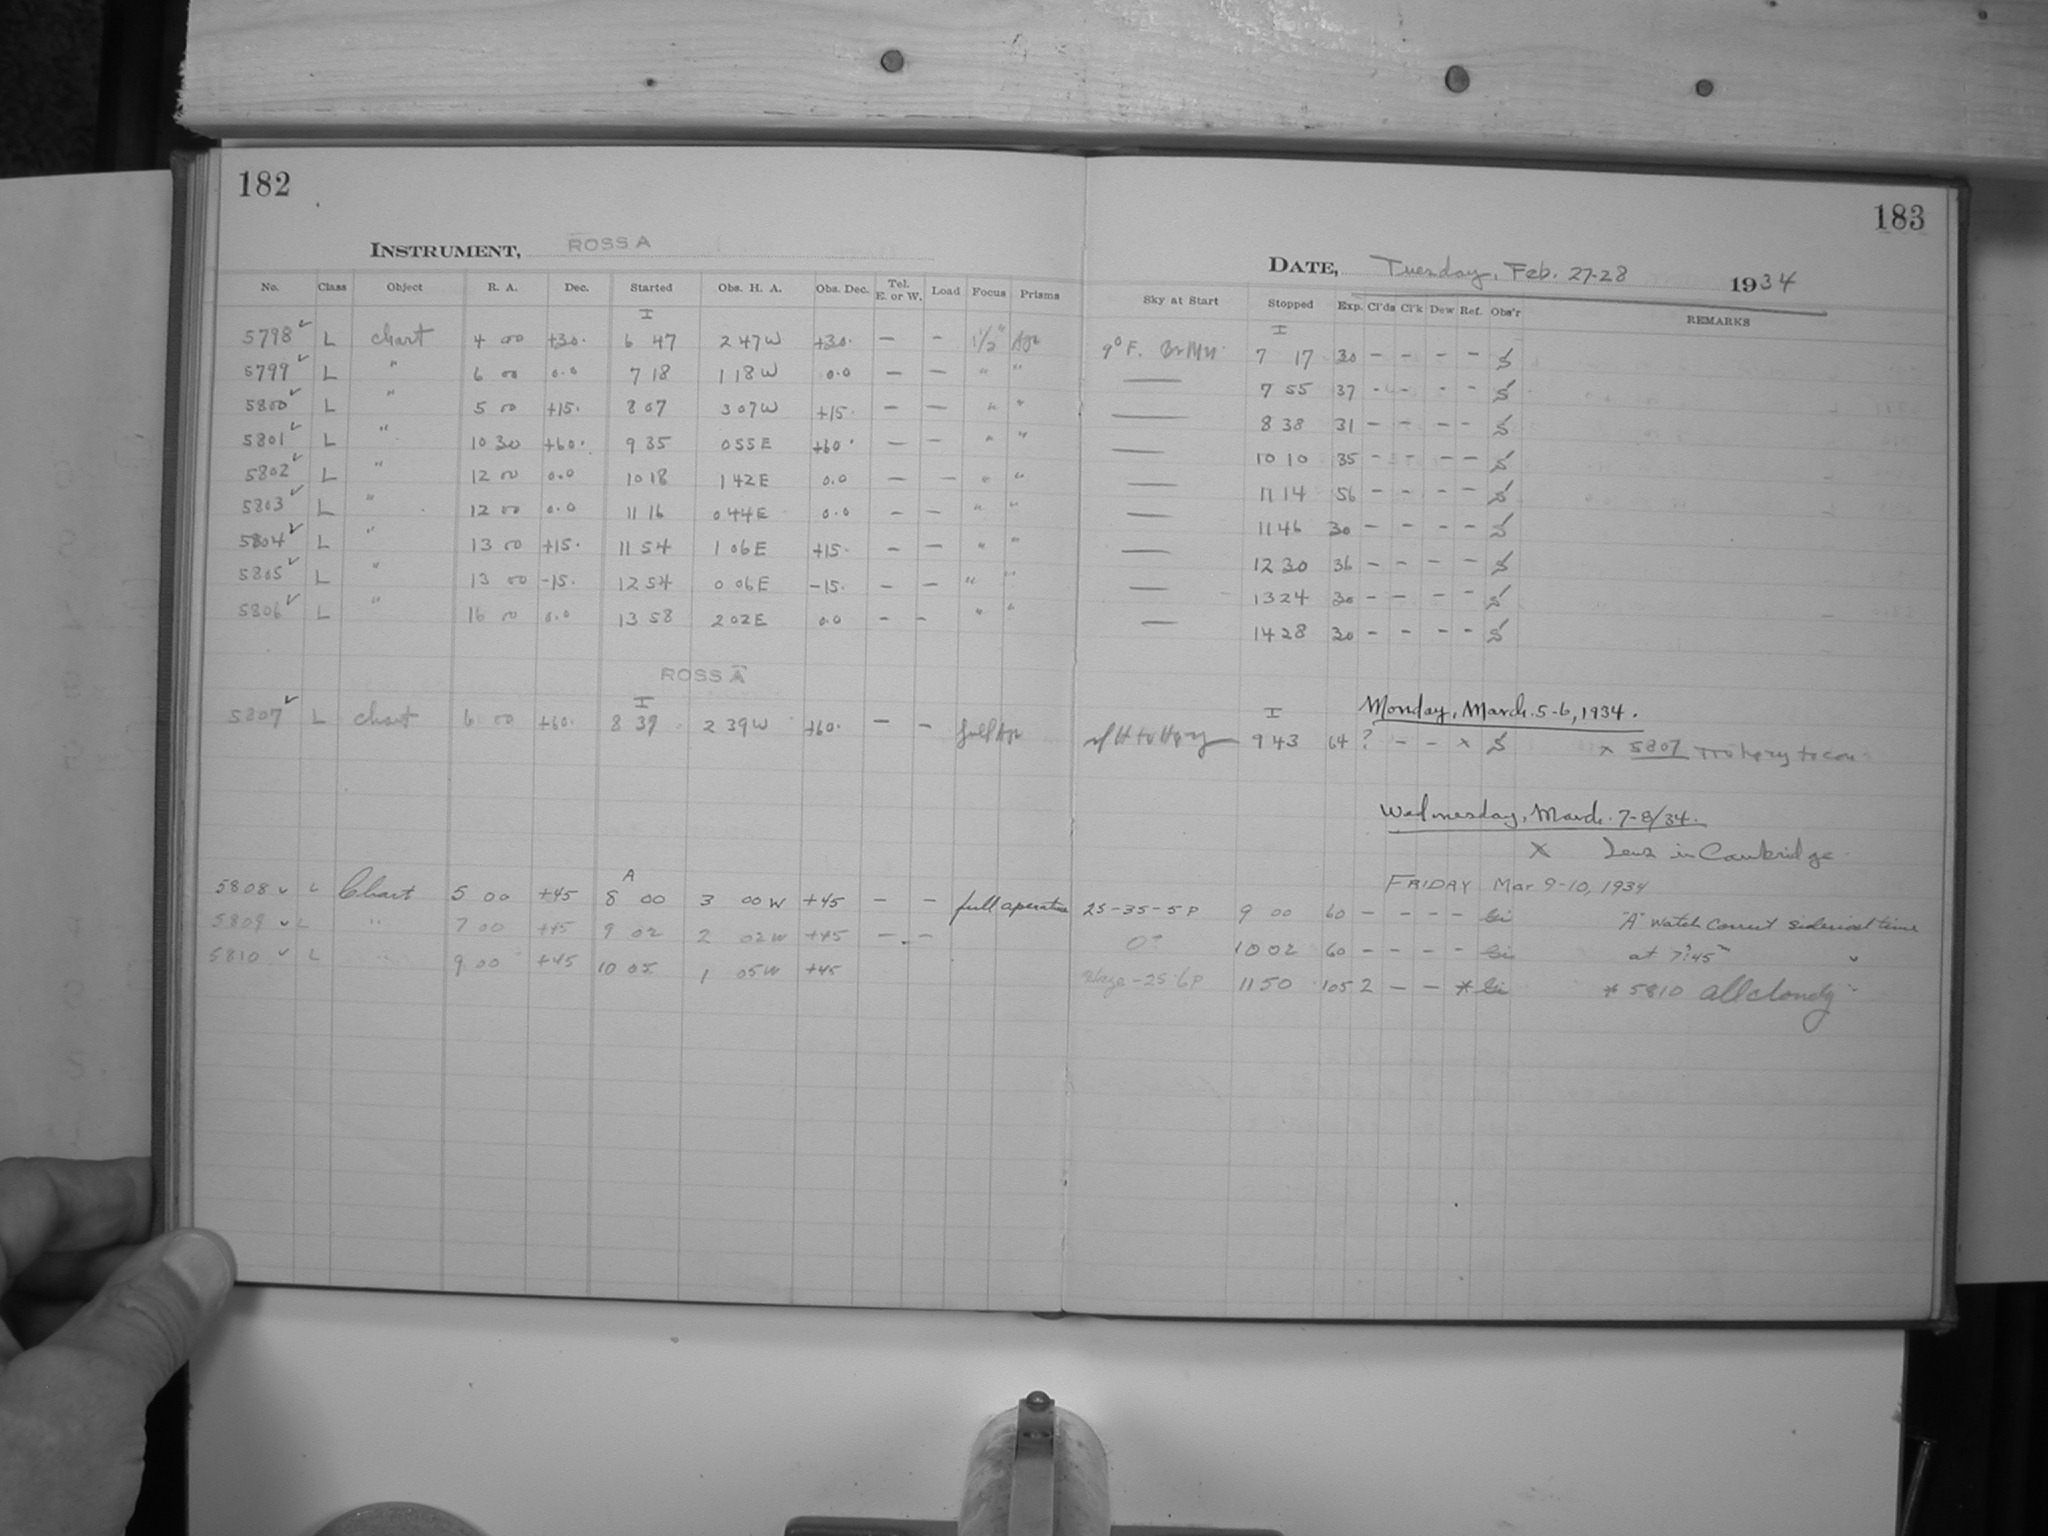 182
INSTRUMENT, ROSS A
No. Class Object R. A. Dec. Started Obs. H. A. Obs. Dec. Tel. E. or W. Load Focus Prisms
I
5798 ✓ L chart 4 00 +30. 6 47 2 47 W +30. — — 1/2" Apr
5799 ✓ L " 6 00 0.0 7 18 1 18 W 0.0 — — " "
5800 ✓ L " 5 00 +15. 8 07 3 07 W +15. — — " "
5801 ✓ L " 10 30 +60. 9 35 0 55 E +60. — — " "
5802 ✓ L " 12 00 0.0 10 18 1 42 E 0.0 — — " "
5803 ✓ L " 12 00 0.0 11 16 0 44 E 0.0 — — " "
5804 ✓ L " 13 00 +15. 11 54 1 06 E +15. — — " "
5805 ✓ L " 13 00 -15. 12 54 0 06 E -15. — — " "
5806 ✓ L " 16 00 0.0 13 58 2 02 E 0.0 — — " "
ROSS A
I
5807 ✓ L chart 6 00 +60. 8 39 2 39 W +60. — — full Apr
A
5808 ✓ L Chart 5 00 +45 8 00 3 00 W +45 — — full aperture
5809 ✓ L " 7 00 +45 9 02 2 02 W +45 — —
5810 ✓ L " 9 00 +45 10 05 1 05 W +45
183
DATE, Tuesday, Feb. 27-28 1934
Sky at Start Stopped Exp. Cl'ds Cl'k Dew Ref. Obs'r REMARKS
I
9° F. 7 17 30 — — — — S
— 7 55 37 — — — — S
— 8 38 31 — — — — S
— 10 10 35 — — — — S
— 11 14 56 — — — — S
— 11 46 30 — — — — S
— 12 30 36 — — — — S
— 13 24 30 — — — — S
— 14 28 30 — — — — S
Monday, March. 5-6, 1934.
I
9 43 64 ? — — x S x 5807 Too hazy to con
Wednesday, March. 7-8/34.
X Lens in Cambridge
FRIDAY Mar 9-10, 1934
25-35-5P 9 00 60 — — — — Gi "A" Watch Correct Sidereal time
0° 10 02 60 — — — — Gi at 7h45m
Haze-25-6P 11 50 105 2 — — * Gi * 5810 all cloudy